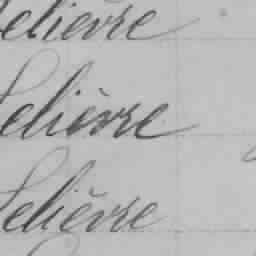 Lelièvre
Lelièvre
Lelièvre